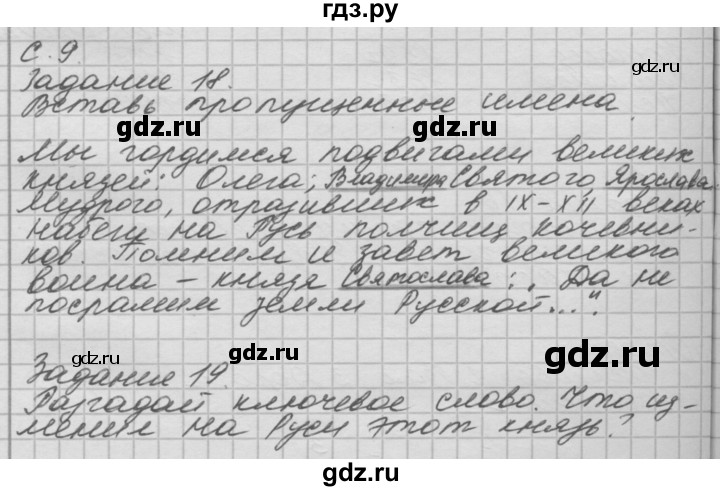 гдз.ру
с. 9.
gdz.ru
Задание 18.
Вставь пропущенные имена.
gdz.ru gdz.ru
Мы гордимся подвигами великих
князей: Олега, Владимира Святого, Ярослава
Мудрого, отразивших в IX-XII веках
набеги на Русь полчищ кочевни-
ков. Помним и завет великого
воина - князя Святослава: „Да не
посрамим земли Русской...".
gdz.ru gdz.ru
Задание 19.
Разгадай ключевое слово. Что из-
менил на Руси этот князь?
gdz.ru
гдз.ру